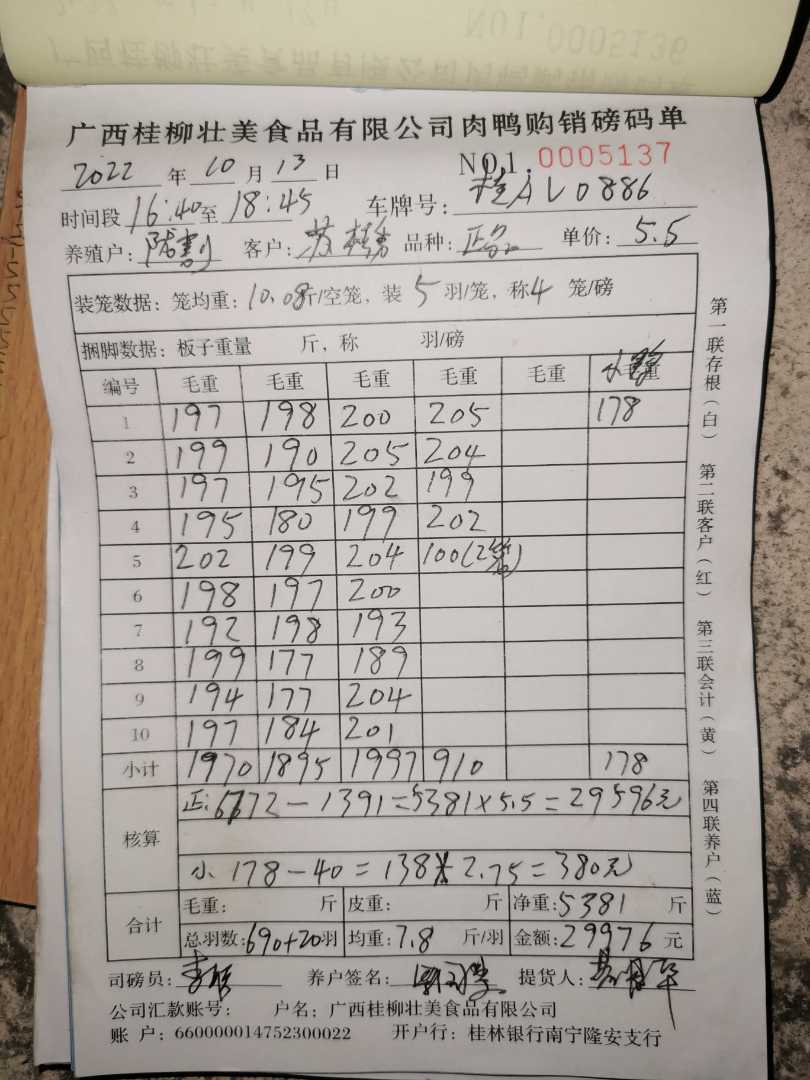 广西桂柳壮美食品有限公司肉鸭购销磅码单
2022 年 10 月 13 日 NO1. 0005137
时间段 16:40 至 18:45 车牌号: 桂AL0886
养殖户: 客户: 苏 品种: 正 单价: 5.5
装笼数据: 笼均重: 10.08斤/空笼, 装 5 羽/笼, 称 4 笼/磅
捆脚数据: 板子重量 斤, 称 羽/磅
编号 毛重 毛重 毛重 毛重 毛重 小 毛重
1 197 198 200 205 178
2 199 190 205 204
3 197 195 202 199
4 195 180 199 202
5 202 199 204 100(2笼)
6 198 197 200
7 192 198 193
8 199 177 189
9 194 177 204
10 197 184 201
小计 1970 1895 1997 910 178
核算 正: 6772-1391=5381×5.5=29596元
小 178-40=138×2.75=380元
合计 毛重: 斤 皮重: 斤 净重: 5381 斤
总羽数: 690+20羽 均重: 7.8 斤/羽 金额: 29976 元
司磅员: 养户签名: 提货人:
公司汇款账号: 户名: 广西桂柳壮美食品有限公司
账 户: 660000014752300022 开户行: 桂林银行南宁隆安支行
第一联存根(白) 第二联客户(红) 第三联会计(黄) 第四联养户(蓝)